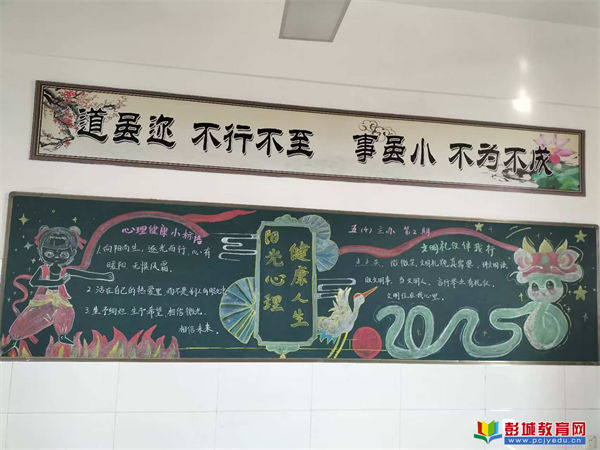 道虽迩 不行不至 事虽小 不为不成
心理健康小标语
1.向阳而生，逐光而行，心有
暖阳 无惧风霜。
2.活在自己的热爱里，而不是别人的眼光
3.生于绚烂 生于希望 相信微光
相信未来。
阳光心理
健康人生
五(4)主办 第2期
文明礼仪伴我行
点点头、微微笑，文明礼貌真需要，讲文明话
做文明事，当文明人，言行举止有礼仪，
文明住在我心里。
2025
彭城教育网
www.pcjyedu.cn